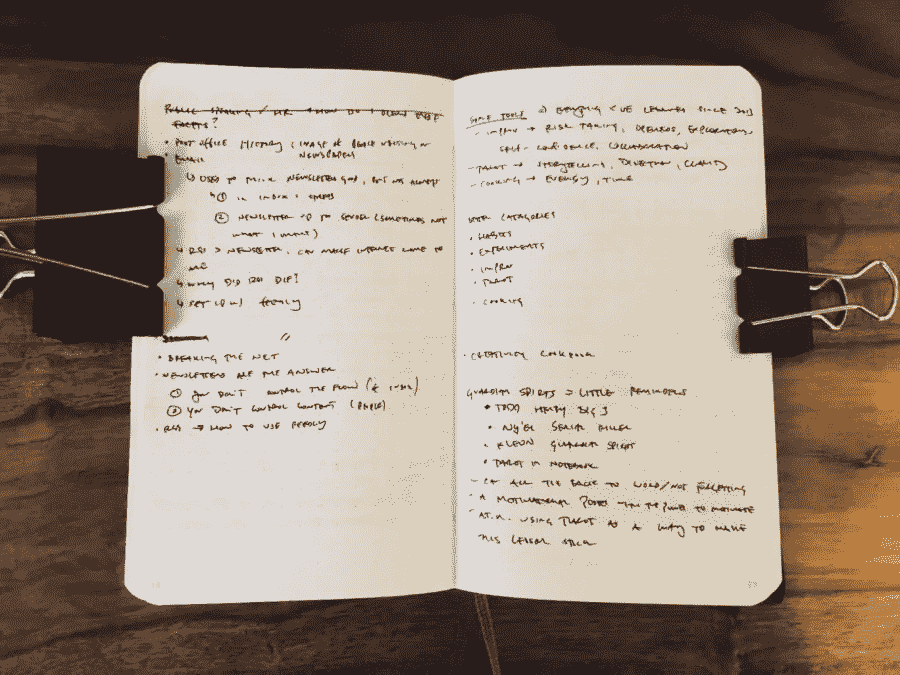 PUBLIC SPEAKING / HOW DO I
FACTS?
• POST OFFICE HISTORY, IMAGE OF PEOPLE
NEWSPAPERS
• EMAIL
↳ USED TO THINK NEWSLETTERS GOOD, BUT NOT
↳ ① IN INBOX
② NEWSLETTER UP TO SENDER (SOMETIMES NOT
WHAT I WANT)
↳ RSS > NEWSLETTER. CAN MAKE INTERNET COME TO
ME
↳ WHY DID RSS DIE?
↳ SET UP W/ FEEDLY
• BREAKING THE NET
• NEWSLETTERS ARE THE ANSWER
① YOU DON'T CONTROL THE FLOW
② YOU DON'T CONTROL CONTENT
• RSS → HOW TO USE FEEDLY
EVERYTHING I'VE LEARNED SINCE
- IMPROV → RISK TAKING, EXPLORATION
SELF-CONFIDENCE, COLLABORATION
- TAROT → STORYTELLING, CLARITY
- COOKING → ENERGY, TIME
CATAGORIES
• HABITS
• EXPERIMENTS
• IMPROV
• TAROT
• COOKING
• CREATIVITY COOKBOOK
GUARDIAN SPIRITS → LITTLE REMINDERS
• BIG 3
• SERIAL KILLER
• KLEON GUARDIAN SPIRITS
• TAROT IN NOTEBOOK
- ALL TIE BACK TO /NOT FORGETTING
- A MOTIVATIONAL TO MOTIVATE
- USING TAROT AS A WAY TO MAKE
THIS LESSON STICK